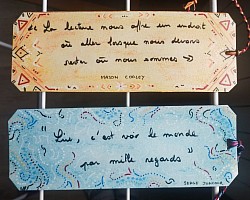 « La lecture nous offre un endroit
où aller lorsque nous devons
rester où nous sommes »
MASON COOLEY
" Lire, c'est voir le monde
par mille regards "
SERGE